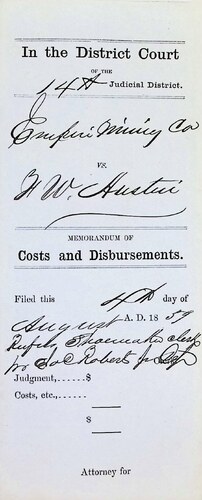 In the District Court
OF THE
14th Judicial District.
Empire Mining Co
VS.
W. Austin
MEMORANDUM OF
Costs and Disbursements.
Filed this 4th day of
August A. D. 18 59
Rufus Shoemaker clerk
Roberts
Judgment,......$
Costs, etc.,......
$
Attorney for